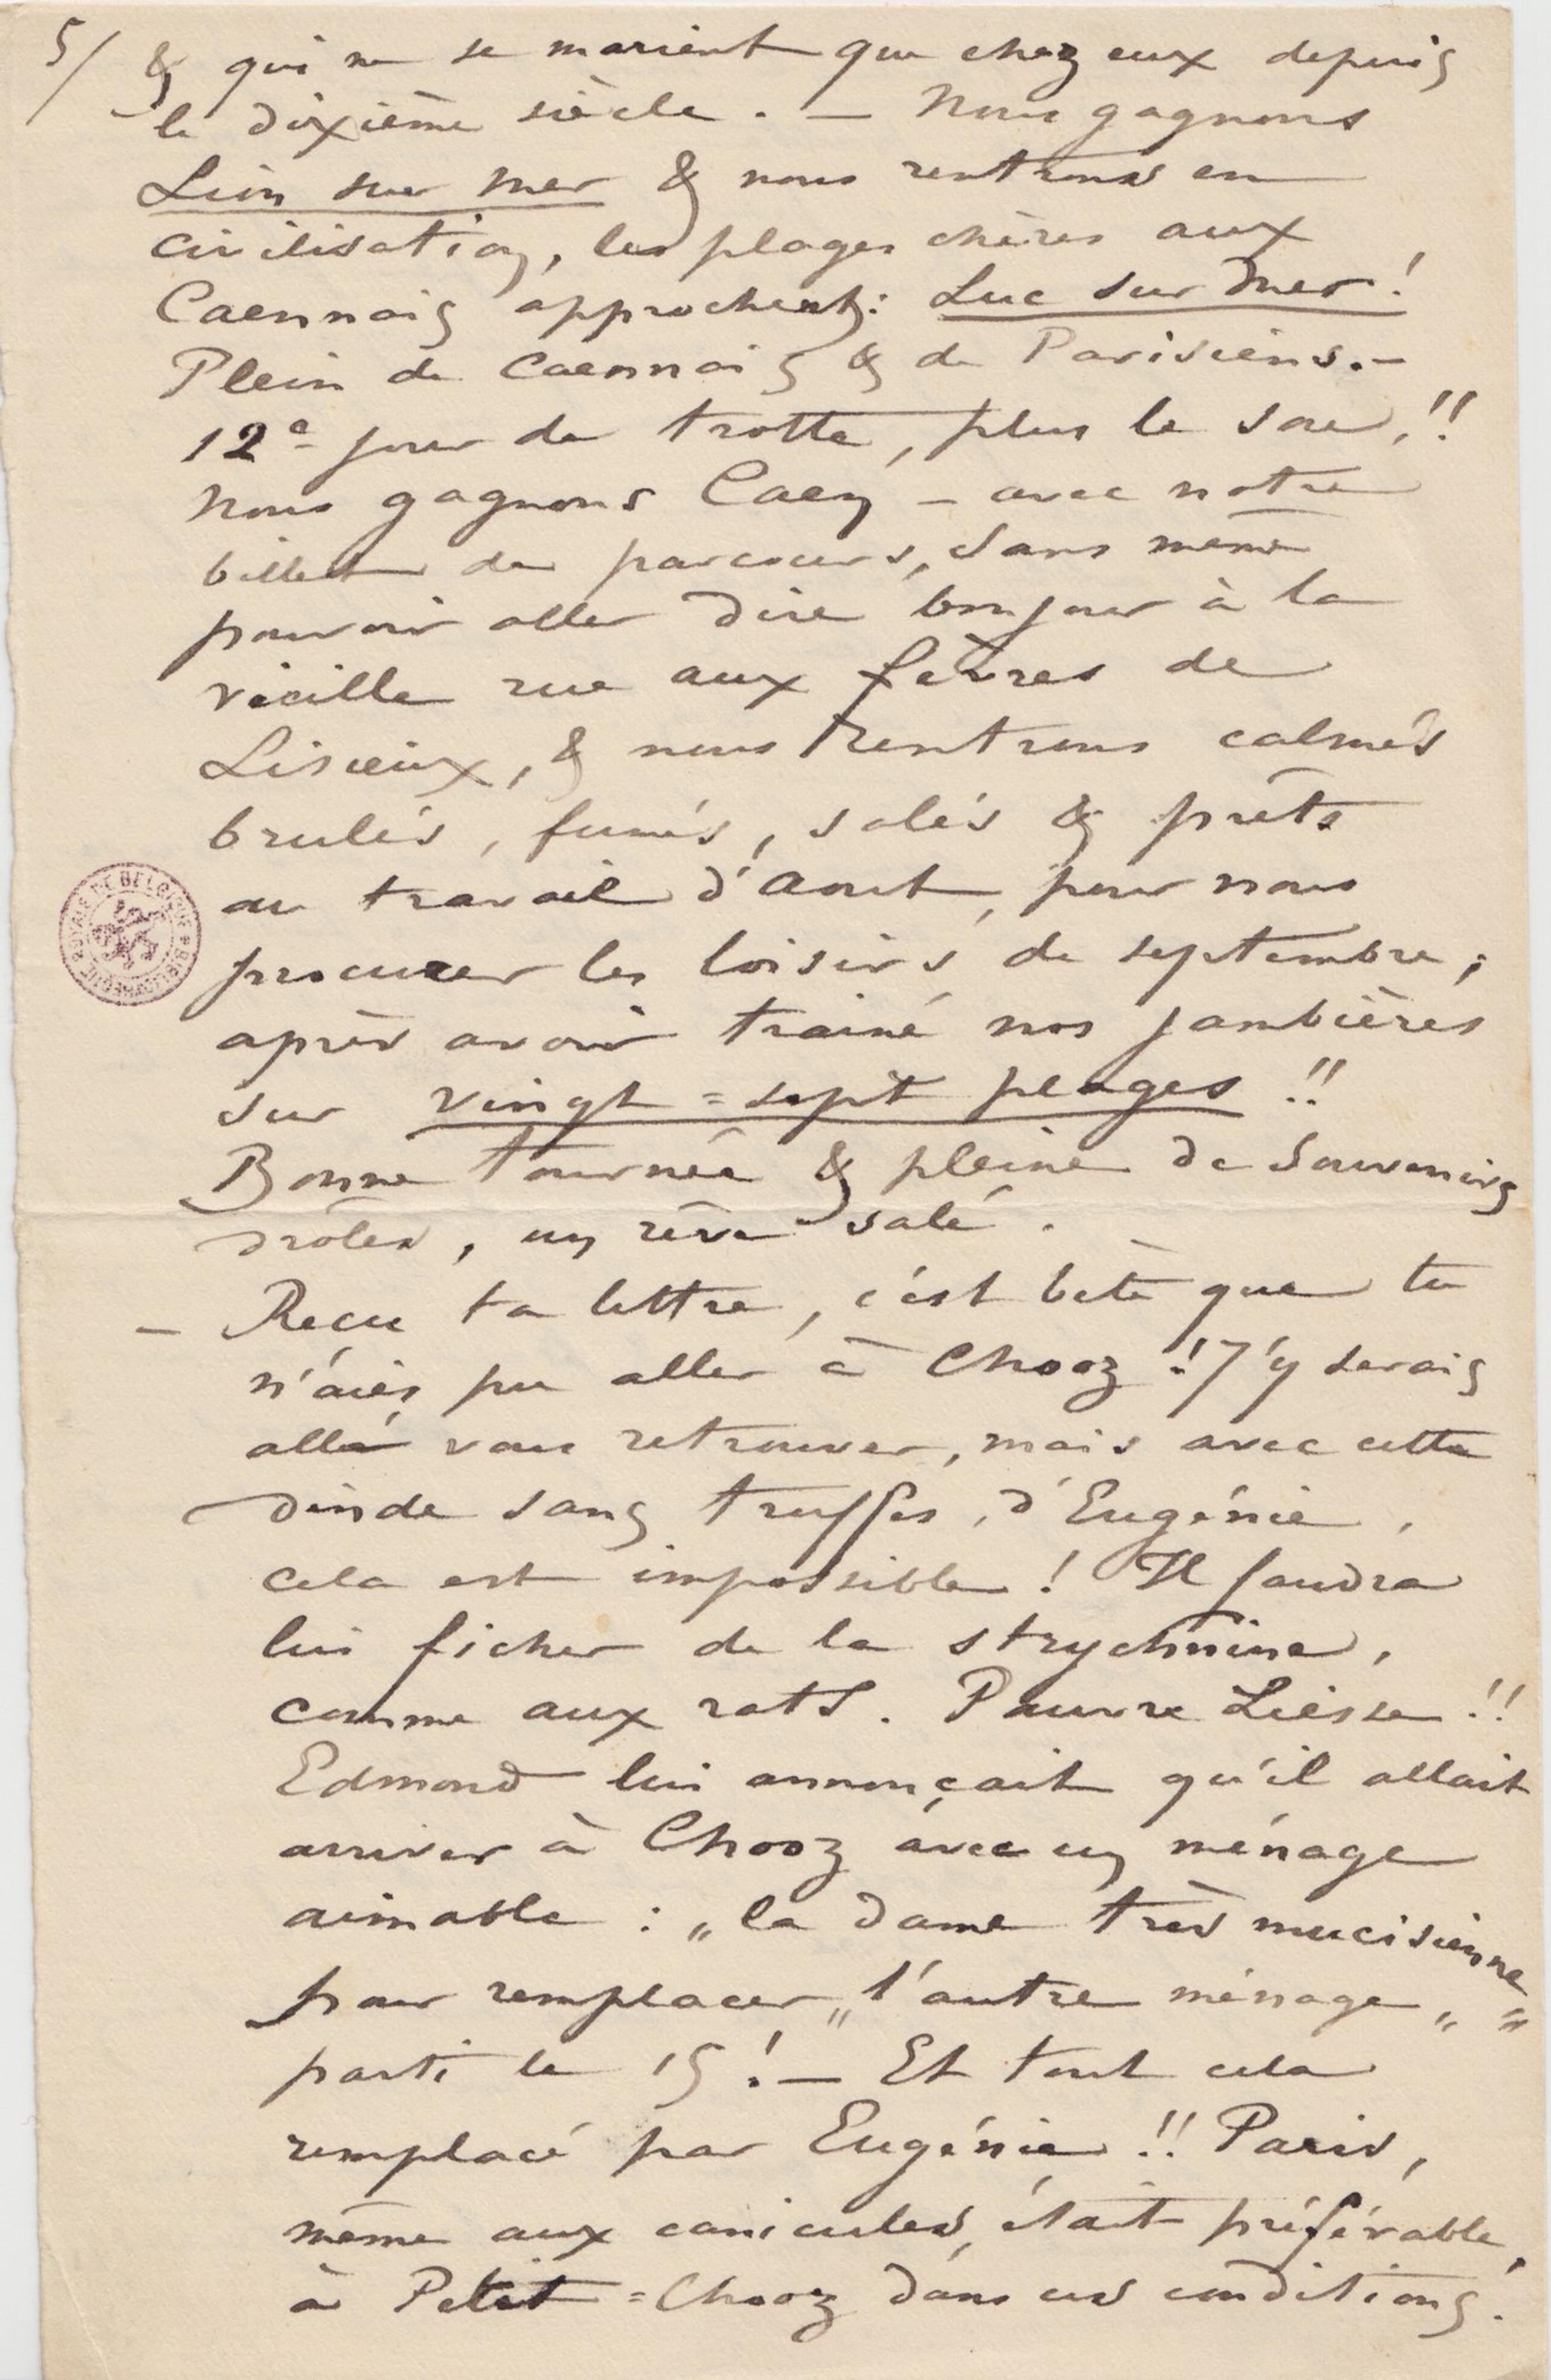 5/ & qui ne se marient que chez eux depuis
le dixième siècle. — Nous gagnons
Lion sur mer & nous rentrons en
civilisation, les plages chères aux
Caennais approchent: Luc sur Mer!
Plein de Caennais & de Parisiens. –
12e jour de trotte, plus le sou,!!
Nous gagnons Caen – avec notre
billet de parcours, sans même
pouvoir aller dire bonjour à la
vieille rue aux fèvres de
Lisieux, & nous rentrons calmés
brulés, fumés, salés & prêts
au travail d'Aout, pour nous
procurer les loisirs de septembre;
après avoir trainé nos jambières
sur vingt=sept plages!!
Bonne tournée & pleine de Souvenirs
drôles, un rêve salé.
— Reçu ta lettre, c'est bête que tu
n'aies pu aller à Chooz! J'y serais
allé vous retrouver, mais avec cette
dinde sans truffes, d'Eugénie,
cela est impossible! Il faudra
lui ficher de la strychnine,
comme aux rats. Pauvre Liesse!!
Edmond lui annonçait qu'il allait
arriver à Chooz avec un ménage
aimable: „la dame très mucisienne
pour remplacer „l'autre ménage„ „
parti le 15! — Et tout cela
remplacé par Eugénie!! Paris,
même aux canicules, était préférable,
à Petit=Chooz dans ces conditions.
BIBLIOTHEQUE ROYALE DE BELGIQUE